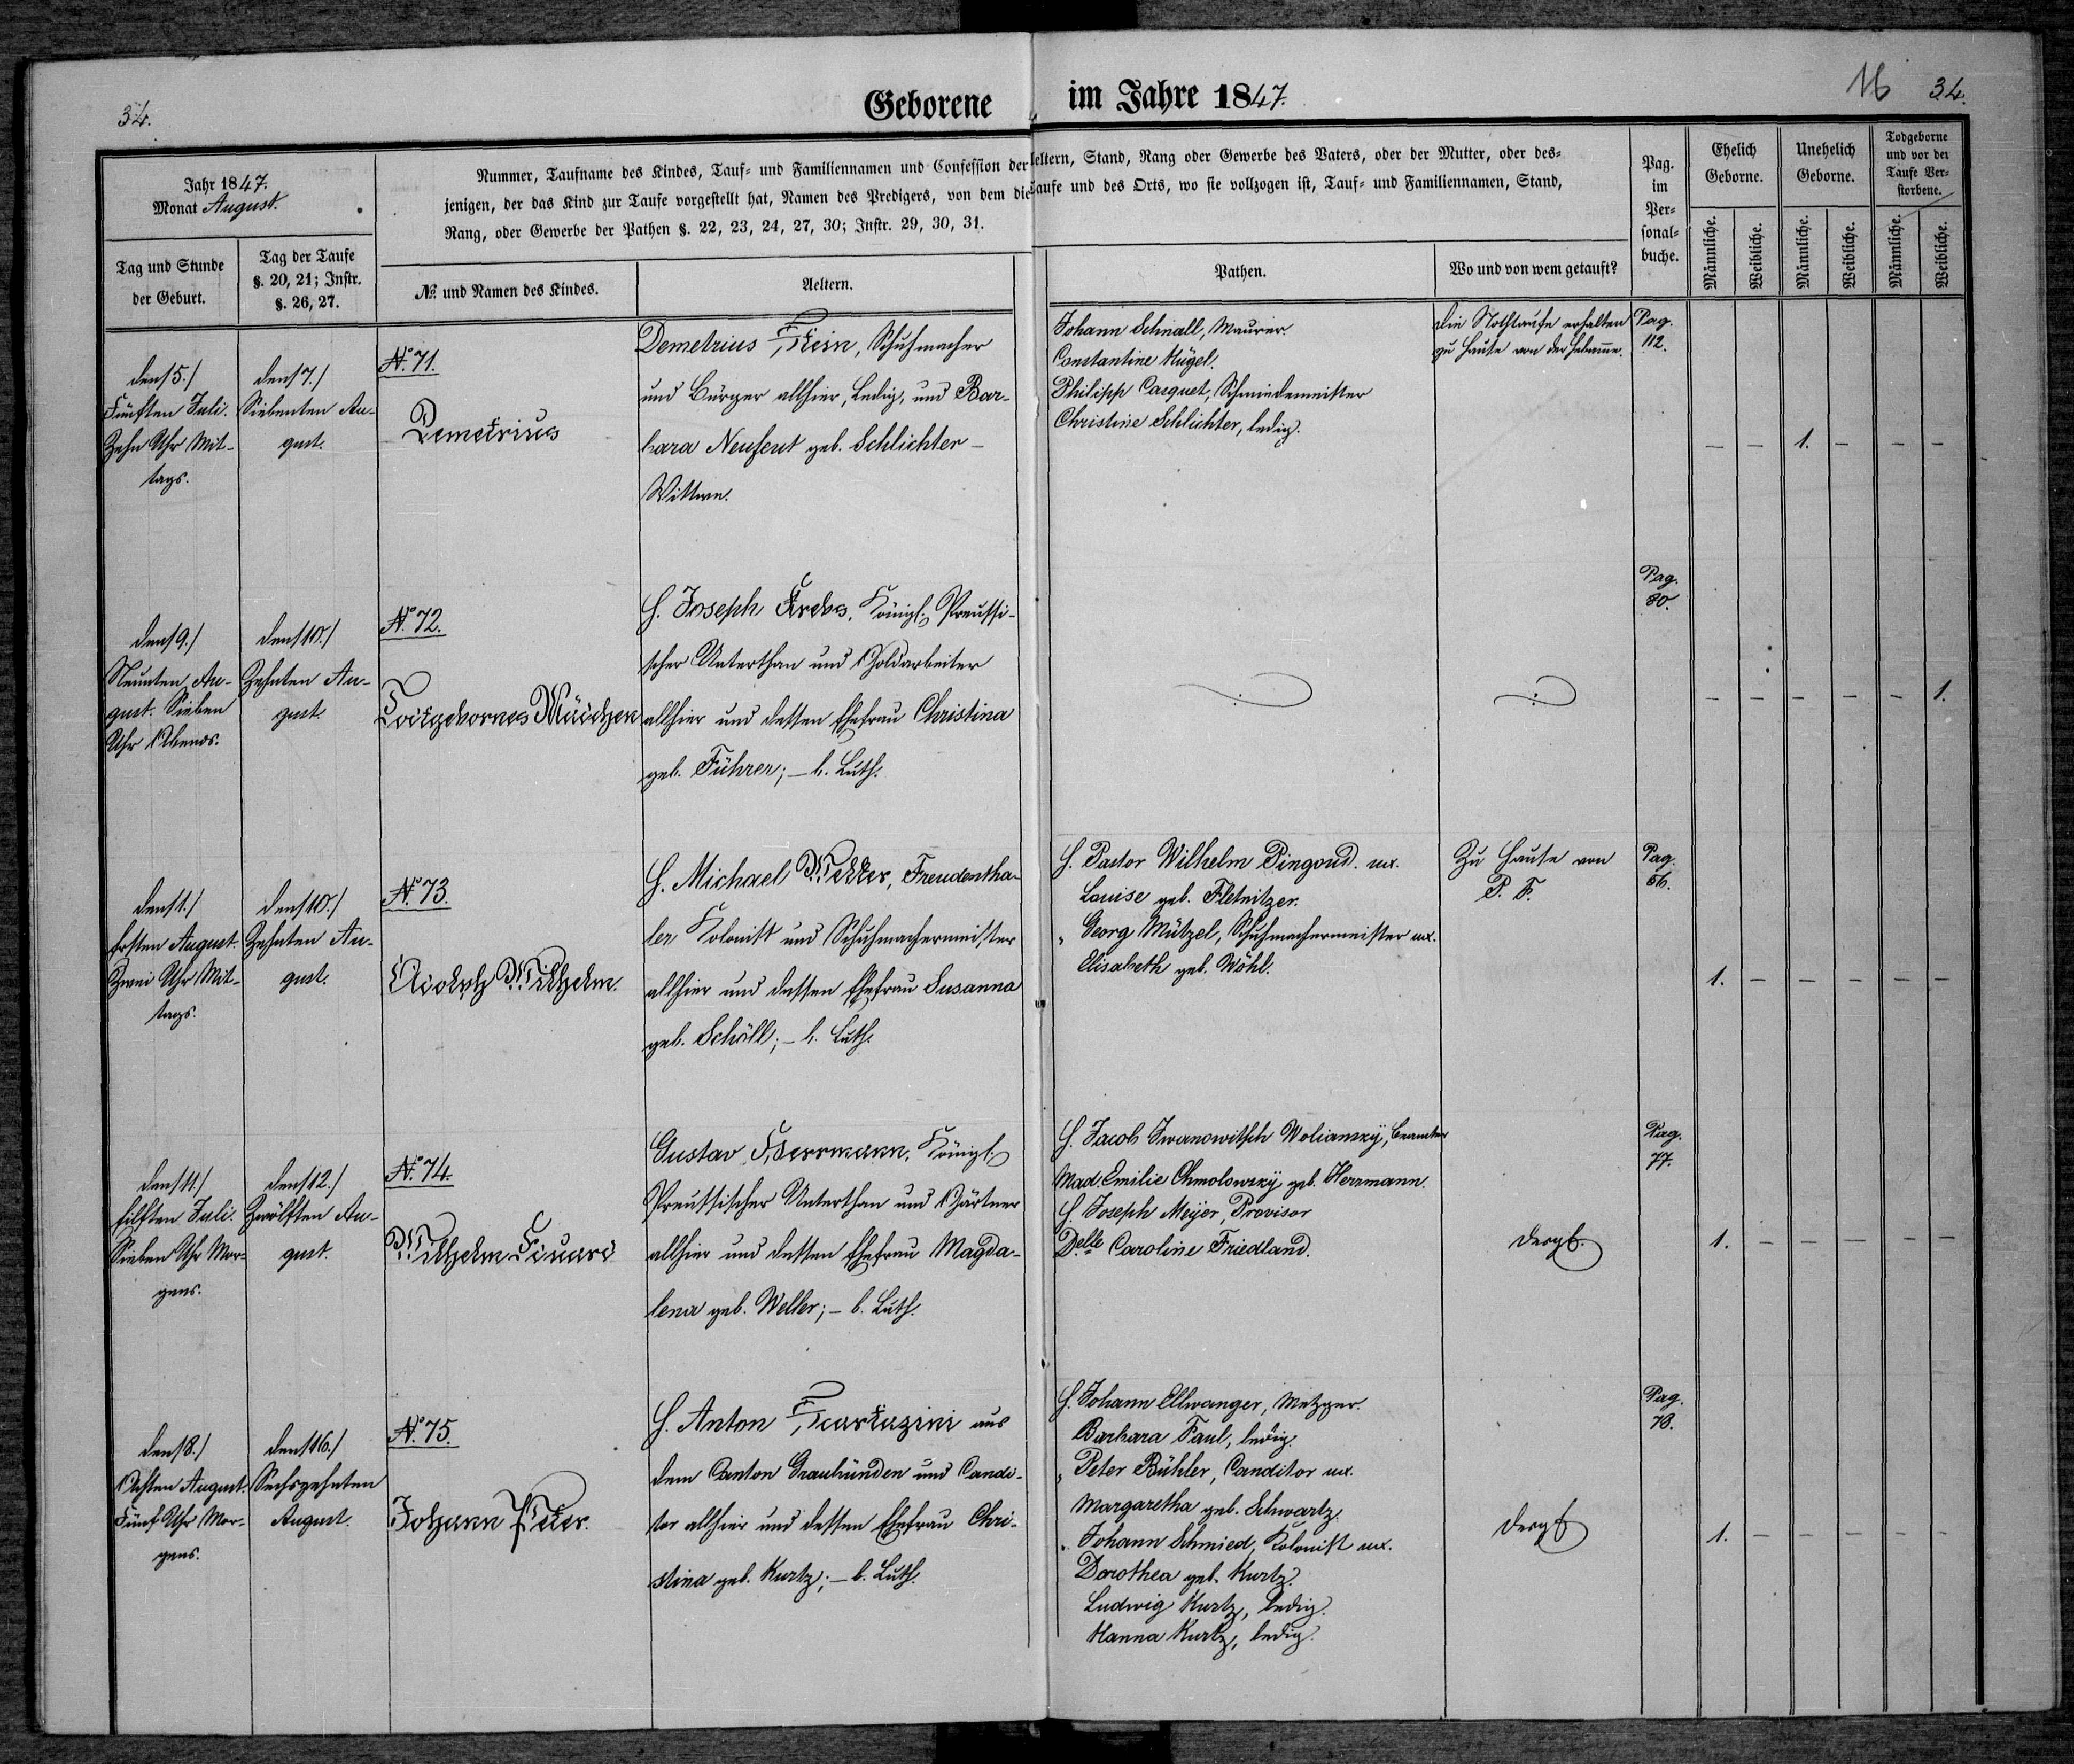 34.
Geborene im Jahre 1847.
16 34.
Jahr 1847.
Monat August.
Nummer, Taufname des Kindes, Tauf- und Familiennamen und Confession der Aeltern, Stand, Rang oder Gewerbe des Vaters, oder der Mutter, oder des-
jenigen, der das Kind zur Taufe vorgestellt hat, Namen des Predigers, von dem die Taufe und des Orts, wo sie vollzogen ist, Tauf- und Familiennamen, Stand,
Rang, oder Gewerbe der Pathen §. 22, 23, 24, 27, 30; Instr. 29, 30, 31.
Pag.
im
Per-
sonal-
buche.
Ehelich
Geborne.
Unehelich
Geborne.
Todgeborne
und vor der
Taufe Ver-
storbene.
Tag und Stunde
der Geburt.
Tag der Taufe
§. 20, 21; Instr.
§. 26, 27.
№ und Namen des Kindes.
Aeltern.
Pathen.
Wo und von wem getauft?
Männliche.
Weibliche.
Männliche.
Weibliche.
Männliche.
Weibliche.
den /5./
Fünften Juli.
Zehn Uhr Mit-
tags.
den /7./
Siebenten Au-
gust.
N°. 71.
Demetrius
Demetrius Stein, Schuhmacher
und Bürger allhier, Ledig, und Bar-
bara Neufent geb. Schlichter –
Wittwe.
Johann Schnall, Maurer.
Constantine Hügel.
Philipp Casquet, Schmiedemeister
Christine Schlichter, ledig.
Die Nothtaufe erhalten
zu Hause von der Hebamme.
Pag.
112.
– – 1. – – –
den /9./
Neunten Au-
gust. Sieben
Uhr Abends.
den /10./
Zehnten Au-
gust.
N°. 72.
Todtgebornes Mädchen
H. Joseph Krebs, Königl. Preussi-
scher Unterthan und Goldarbeiter
allhier und dessen Ehefrau Christina
geb. Führer; – b. Luth.
Pag.
80.
– – – – – 1.
den /1./
Ersten August.
Zwei Uhr Mit-
tags.
den /10./
Zehnten Au-
gust.
N°. 73.
Adolph Wilhelm.
H. Michael Weller, Freudentha-
ler Kolonist und Schuhmachermeister
allhier und dessen Ehefrau Susanna
geb. Schöll; – b. Luth.
H. Pastor Wilhelm Pingoud. ux.
Louise geb. Fletnitzer.
„ Georg Mützel, Schuhmachermeister ux.
Elisabeth geb. Wöhl.
Zu Hause von
P. F.
Pag.
56.
1. – – – – –
den /11./
Eilften Juli.
Sieben Uhr Mor-
gens.
den /12./
Zwölften Au-
gust.
N°. 74.
Wilhelm Eduard
Gustav Herrmann, Königl.
Preussischer Unterthan und Gärtner
allhier und dessen Ehefrau Magda-
lena geb. Weller; – b. Luth.
H. Jacob Iwanowitsch Woliansky, Beamter
Mad. Emilie Chmolowsky geb. Herrmann.
H. Joseph Meyer, Provisor
Delle Caroline Friedland.
dergl.
Pag.
77.
1. – – – – –
den /8./
Achten August.
Fünf Uhr Mor-
gens.
den /16./
Sechszehnten
August.
N°. 75.
Johann Peter.
H. Anton Scartazini aus
dem Canton Graubünden und Candi-
tor allhier und dessen Ehefrau Chri-
stina geb. Kurtz; – b. Luth.
H. Johann Ellwanger, Metzger.
Barbara Faul, ledig.
„ Peter Bühler, Canditor ux.
Margaretha geb. Schwartz.
„ Johann Schmied, Kolonist ux.
Dorothea geb. Kurtz.
Ludwig Kurtz, ledig.
Hanna Kurtz, ledig.
dergl
Pag.
78.
1. – – – – –